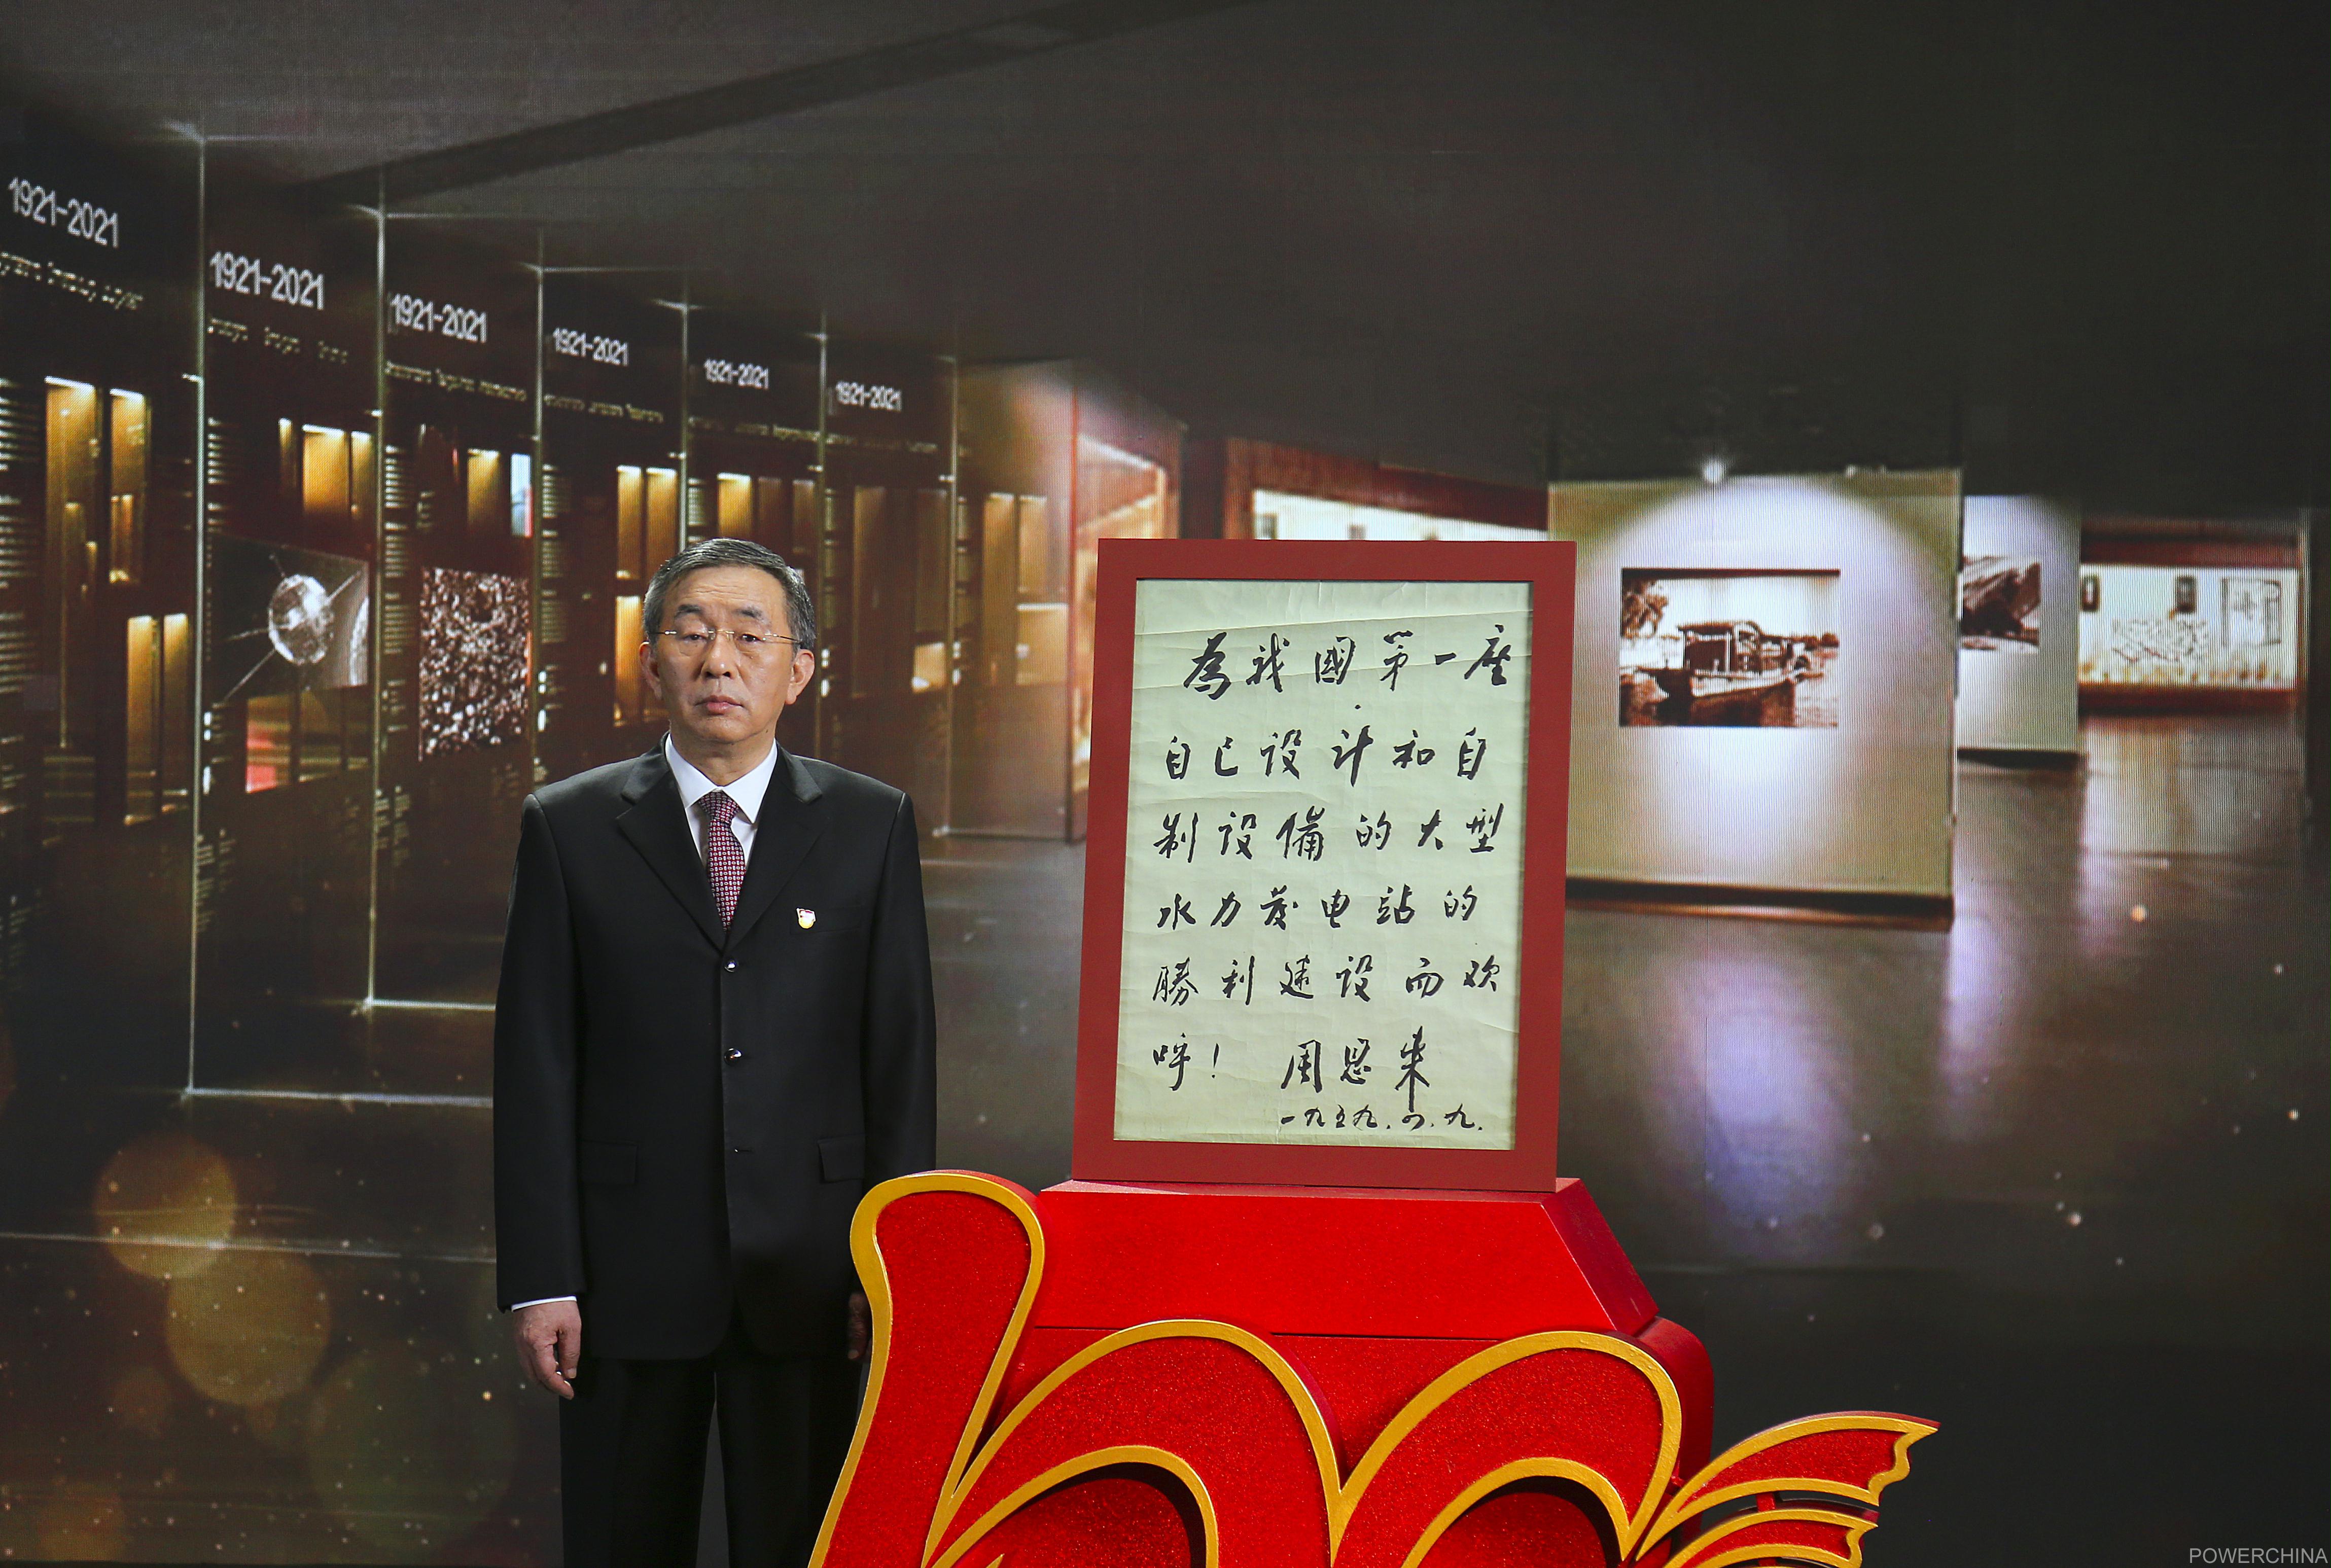 1921-2021
1921-2021
1921-2021
1921-2021
1921-2021
1921-2021
為我國第一座
自己设计和自
制设備的大型
水力发电站的
勝利建设而欢
呼！ 周恩来
一九五九.四.九.
POWERCHINA